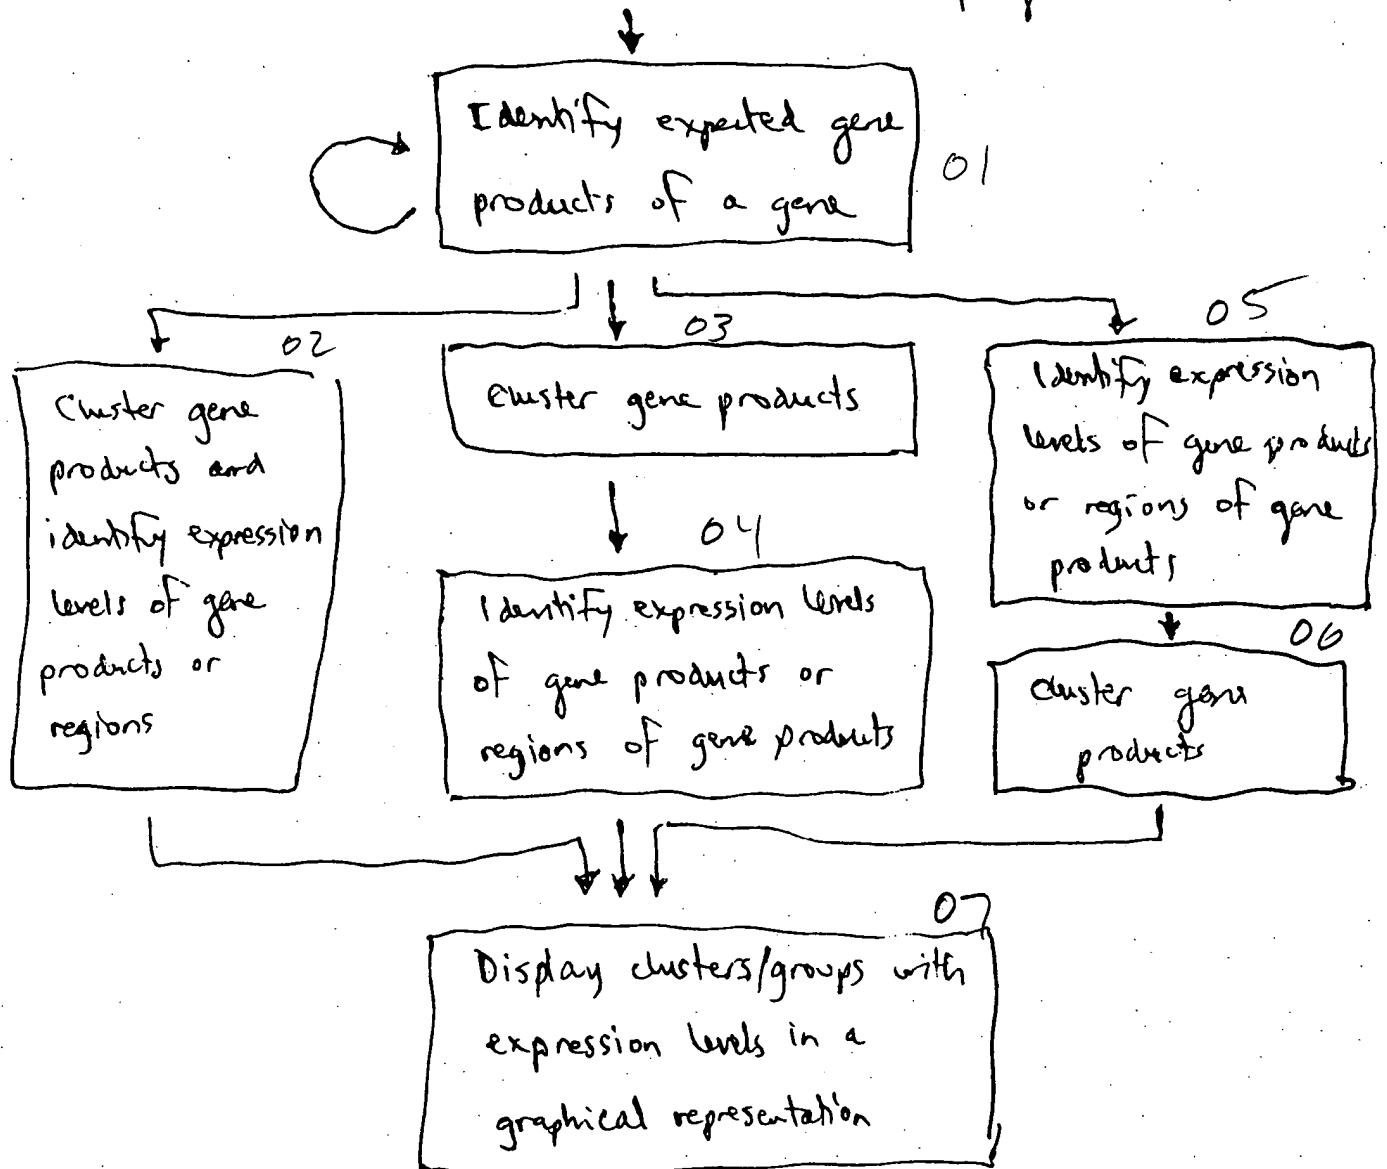 Identify expected gene
products of a gene
01
02
Cluster gene
products and
identify expression
levels of gene
products or
regions
03
Cluster gene products
04
Identify expression levels
of gene products or
regions of gene products
05
Identify expression
levels of gene products
or regions of gene
products
06
Cluster gene
products
07
Display clusters/groups with
expression levels in a
graphical representation